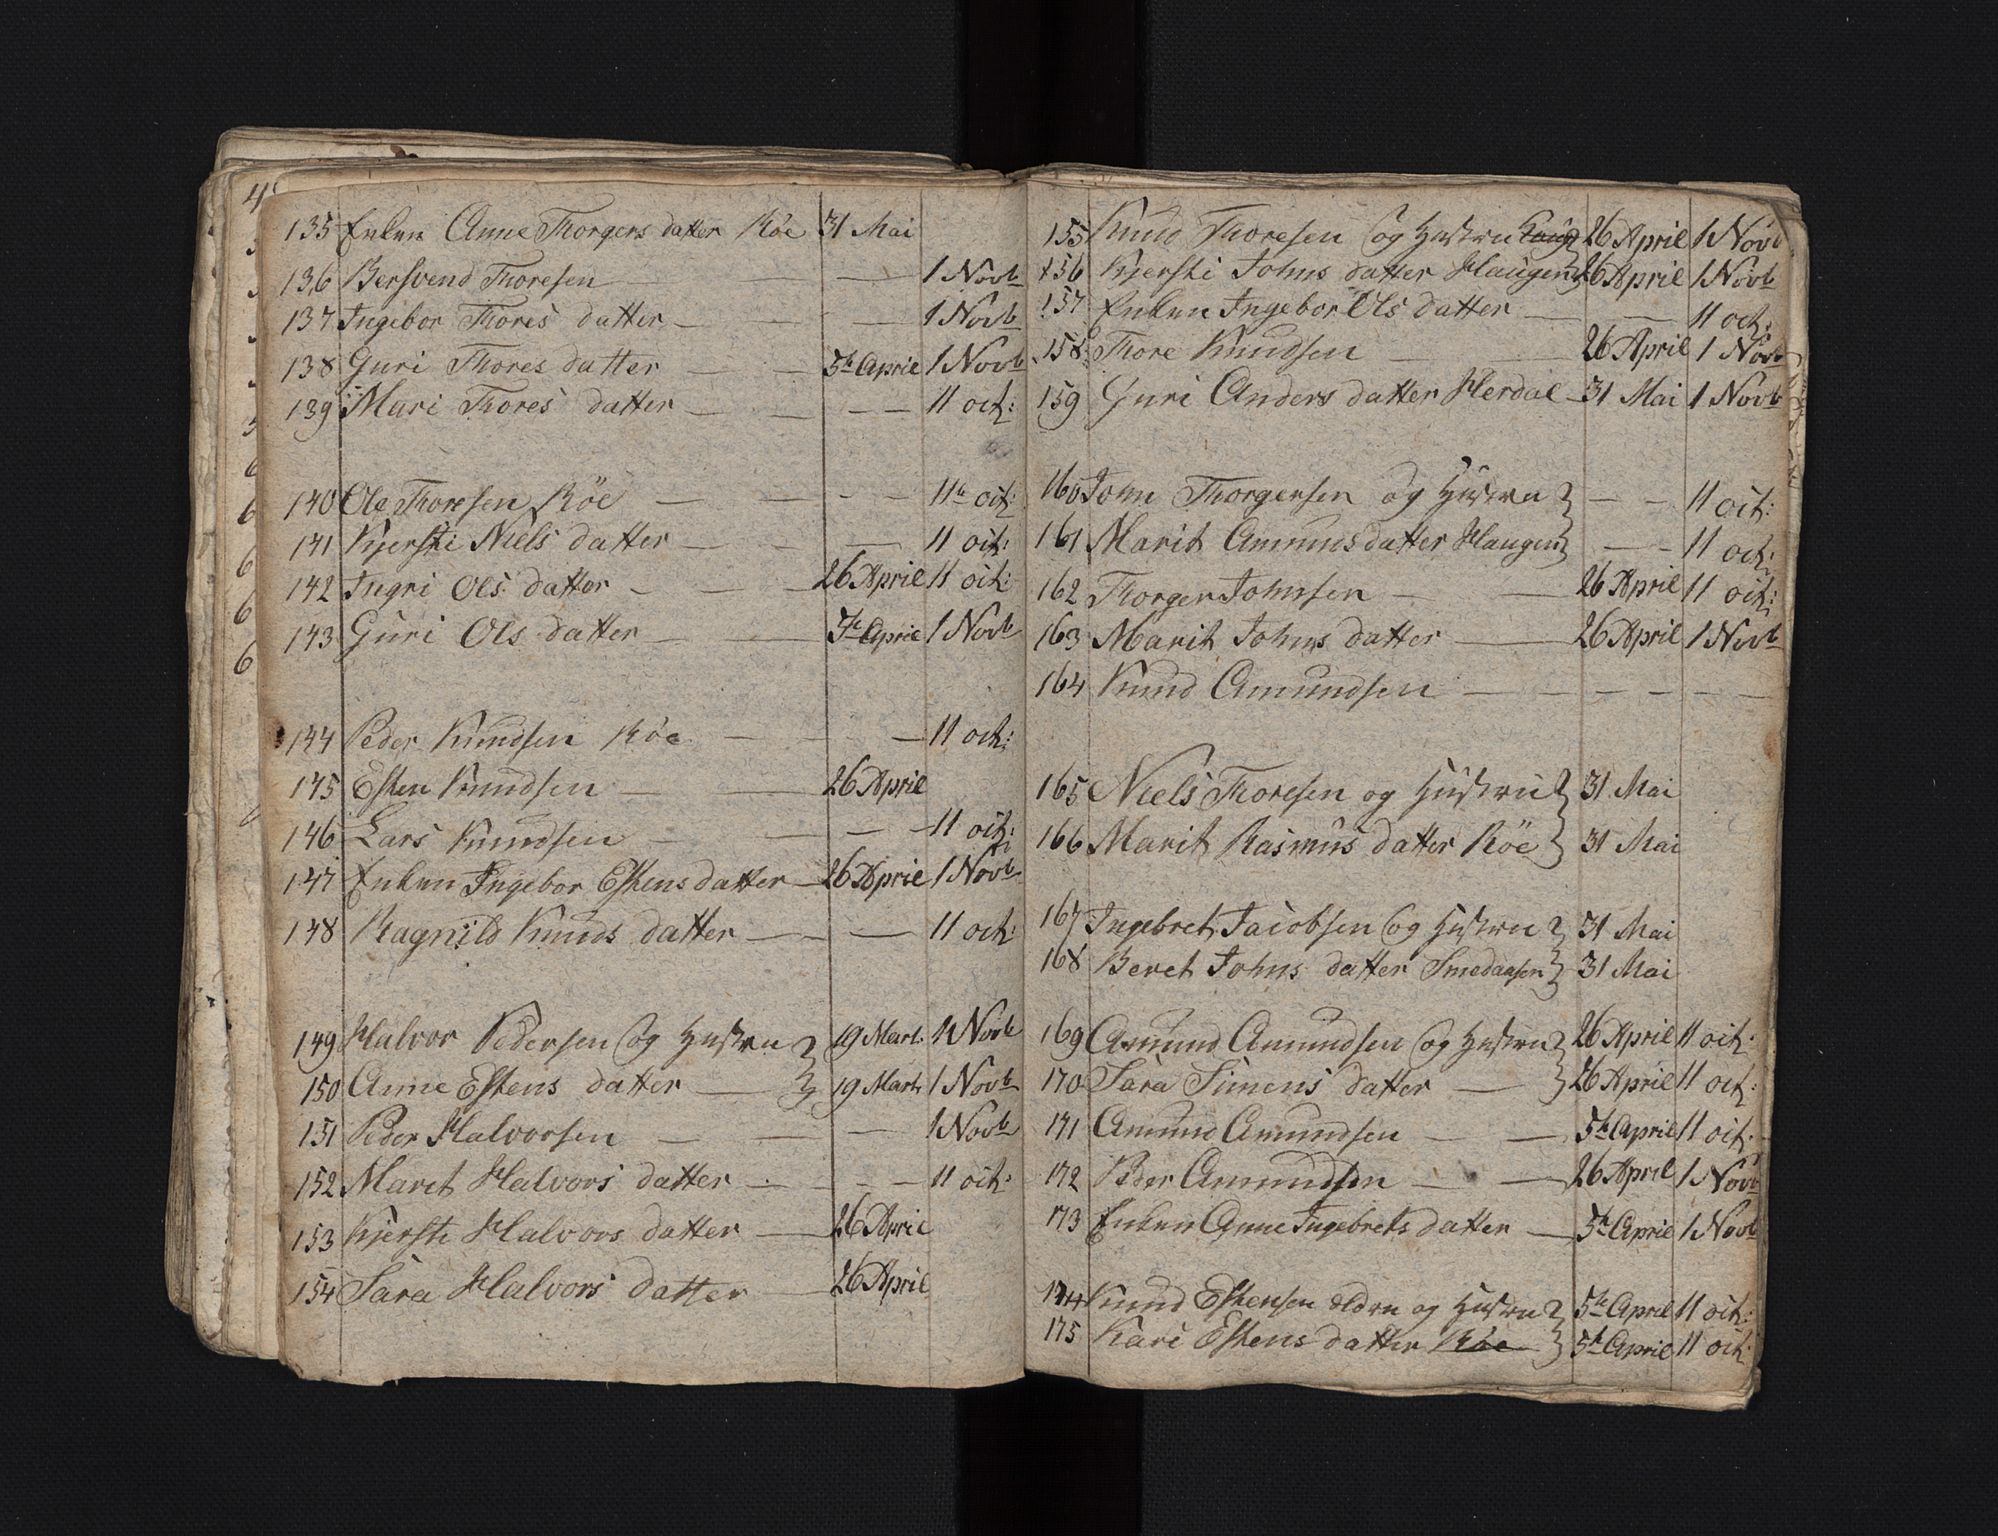 135 Enken Anne Thorgers datter Röe 31 Mai
136 Bersvend Thoresen — 1 Novb
137 Ingebor Thores datter — — — 1 Novb
138 Guri Thores datter — — 5te April 1 Novb
139 Mari Thores datter — — — — 11 oct:
140 Ole Thoresen Röe — — — — 11te oct:
141 Kjersti Niels datter — — — 11 oct:
142 Ingri Ols datter — — — 26 April 11 oct:
143 Guri Ols datter — — 5te April 1 Novb
144 Peder Knudsen Röe — — — — 11 oct:
145 Esten Knudsen — — 26 April
146 Lars Knudsen — — — — 11 oct:
147 Enken Ingebor Estens datter — 26 April 1 Novb
148 Ragnild Knuds datter — — — 11 oct:
149 Halvor Pedersen og Hustru } 19 Mart: 1 Novb
150 Anne Estens datter — } 19 Mart: 1 Novb
151 Peder Halvorsen — — — 1 Novb
152 Maret Halvors datter — — — — 11 oct:
153 Kjersti Halvors datter — 26 April
154 Sara Halvors datter — 26 April
155 Knud Thoresen og Hustru } 26 April 1 Novb
156 Kjersti Johns datter Haugen } 26 April 1 Novb
157 Enken Ingebor Ols datter — — 11 oct:
158 Thore Knudsen — — 26 April 1 Novb
159 Guri Anders datter Herdal — 31 Mai 1 Novb
160 John Thorgersen og Hustru } — — 11 oct:
161 Marit Amunds datter Haugen } — — 11 oct:
162 Thorger Johnsen — — 26 April 11 oct:
163 Marit Johns datter — 26 April 1 Novb
164 Knud Amundsen — — — — — —
165 Niels Thoresen og Hustru } 31 Mai
166 Marit Rasmus datter Röe } 31 Mai
167 Ingebret Jacobsen og Hustru } 31 Mai
168 Beret Johns datter Smedaasen } 31 Mai
169 Amund Amundsen og Hustru } 26 April 11 oct:
170 Sara Simens datter — } 26 April 11 oct:
171 Amund Amundsen — — 5te April 11 oct:
172 Peder Amundsen — — 26 April 1 Novb
173 Enken Anne Ingebrets datter — 5te April 1 Novb
174 Knud Estensen ældre og Hustru } 5te April 11 oct:
175 Kari Estens datter Röe } 5te April 11 oct: